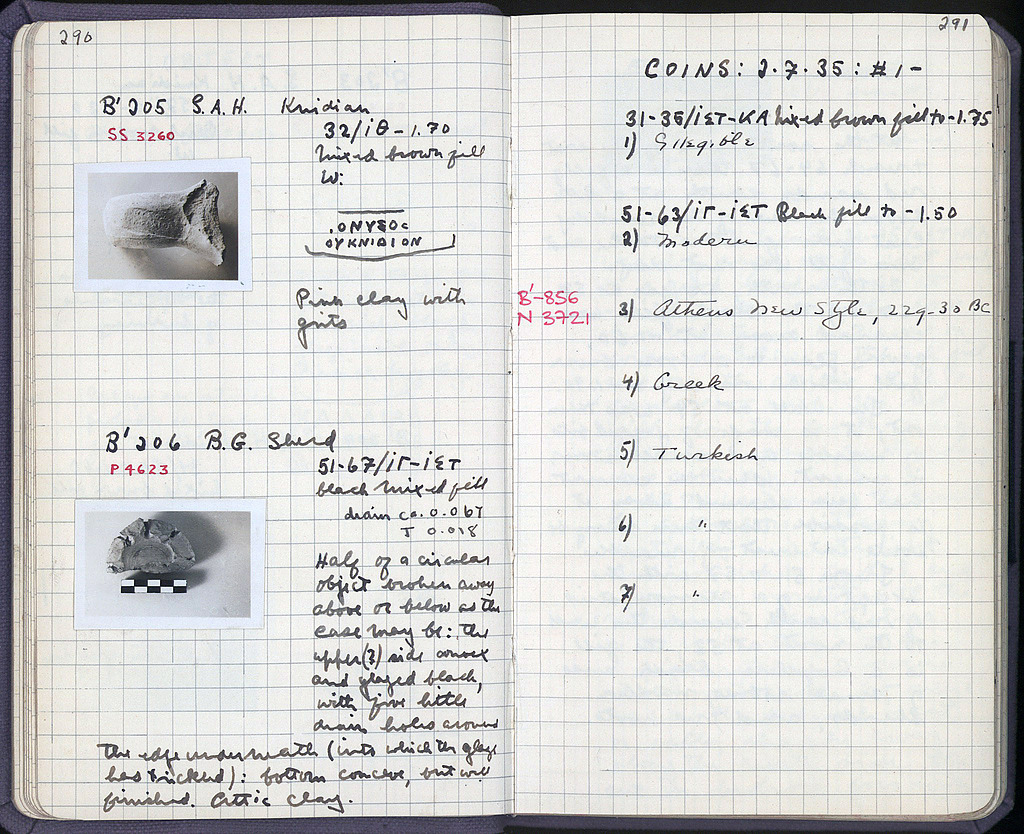 290
B' 205 S.A.H. Knidian
SS 3260
32/ΙΘ - 1.70
Mixed brown fill
W:
.ΟΝΥΣΟC
ΟΥΚΝΙΔΙΟΝ
Pink clay with
grits
B' 206 B.G. Sherd
P 4623
51-67/ΙΓ-ΙΣΤ
black mixed fill
diam ca. 0.067
T 0.018
Half of a circular
object broken away
above or below as the
case may be: the
upper(?) side convex
and glazed black,
with five little
drain holes around
the edge underneath (into which the glaze
has trickled): bottom concave, but well
finished. Attic clay.
291
COINS: 2.7.35: #1-
31-35/ΙΣΤ-ΚΑ Mixed brown fill to -1.75
1) Illegible
51-63/ΙΓ-ΙΣΤ Black fill to -1.50
2) Modern
B'-856
N 3721
3) Athens New Style, 229-30 BC
4) Greek
5) Turkish
6) "
7) "